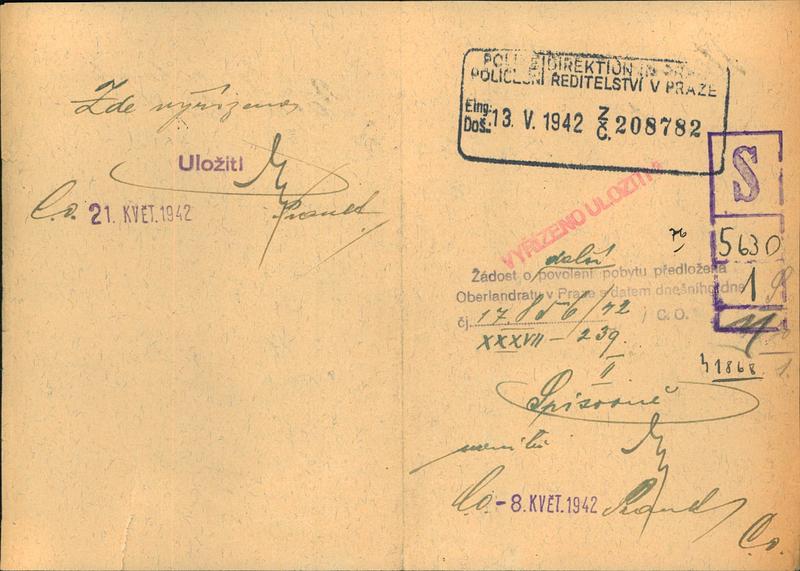 Zde vyřízeno
Uložiti
Co. 21. KVĚT. 1942
POLIZEIDIREKTION IN PRAG
POLICEJNÍ ŘEDITELSTVÍ V PRAZE
Eing.:
Doš.: 13. V. 1942 Z/Č. 208782
S
VYŘÍZENO ULOŽITI
5630
další
Žádost o povolení pobytu předložena
1
Oberlandratu v Praze s datem dnešního dne
čj. 17.856/42 / C. O.
XXXVII - 239.
II
4 1868
Spisovně
Co. - 8. KVĚT. 1942
Co.